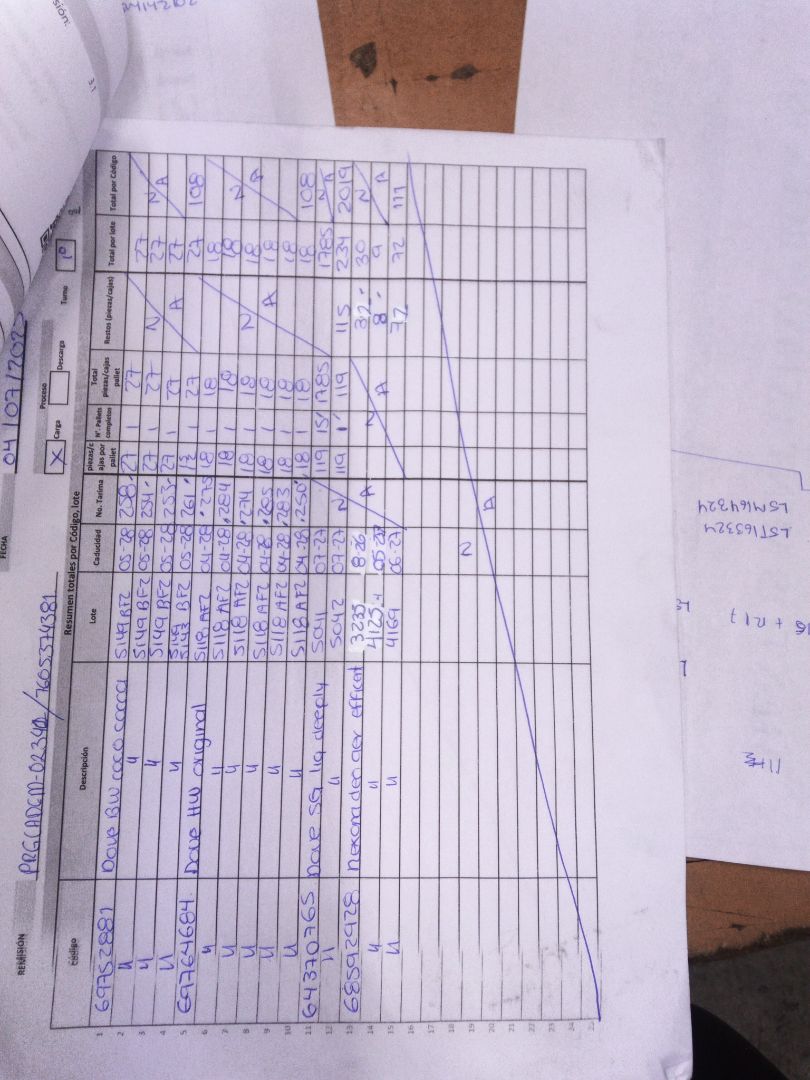 FECHA 04/07/202
REMISIÓN PRGCHDGM-02340/7605374381
Proceso
X Carga Descarga Turno 1º
Resumen totales por Código, lote
Código Descripción Lote Caducidad No. Tarima piezas/cajas por pallet N°. Pallets completos Total piezas/cajas pallet Restos (piezas/cajas) Total por lote Total por Código
1 69752881 Dove BW coco 5149 BFZ 05-28 258 27 1 27 27
2 " " 5149 BFZ 05-28 254 27 1 27 N 27 N
3 " " 5149 BFZ 05-28 253 27 1 27 A 27 A
4 " " 5143 BFZ 05-28 261 27 27 108
5 69764684 Dove HW original 5118 AFZ 04-28 275 18 1 18 18
6 " " 5118 AFZ 04-28 284 18 1 18 18
7 " " 5118 AFZ 04-28 274 18 1 18 N 18 N
8 " " 5118 AFZ 04-28 285 18 1 18 A 18 A
9 " " 5118 AFZ 04-28 283 18 1 18 18
10 " " 5118 AFZ 04-28 250 18 1 18 18 108
11 64370765 Dove SG liq deeply 5041 07-27 119 15 1785 1785 N A
12 " " 5042 07-27 N 119 1 119 115 234 2019
13 68592928 efficent 3235 8-26 A N 32 30 N
14 " " 4125 05-27 A 8 9 A
15 " " 4169 06-27 72 72 111
16
17
18 N
19 A
20
21
22
23
24
25
LST163324
LSM164324
+ R17